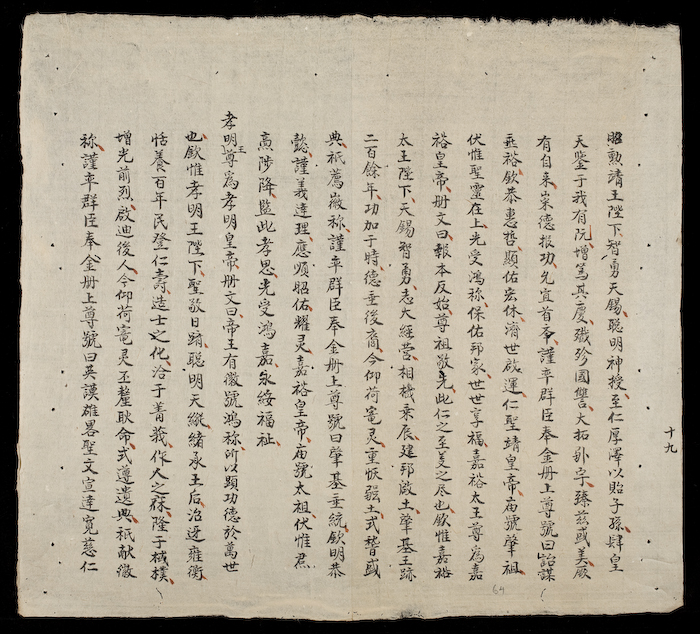 昭勳靖王陛下智勇天錫聰明神授至仁厚澤以貽子孫肆皇
天鑒于我有阮增篤其慶殲殄國讐大拓邦宇臻茲盛美厥
有自来崇德报功允宜首奉謹率群臣奉金册上尊號曰詒謀
垂裕欽恭惠哲顯佑宏休濟世啟運仁聖靖皇帝庙號肇祖
伏惟聖靈在上光受鸿称保佑邦家世世享福嘉裕太王尊爲嘉
裕皇帝册文曰報本反始尊祖敬先此仁之至義之尽也欽惟嘉裕
太王陛下天錫智勇志大經营相機乘辰建邦啟土肇基王跡
二百餘年功加于時德垂後裔今仰荷寵灵重恢疆土式朁盛
典祇薦徽称謹率群臣奉金册上尊號曰肇基垂統欽明恭
懿謹義達理應順昭佑耀灵嘉裕皇帝庙號太祖伏惟焄
高陟降監此孝思光受鴻嘉永綏福祉
孝明王尊爲孝明皇帝册文曰帝王有徽號鴻称所以顕功德於萬世
也欽惟孝明王陛下聖敬日躋聰明天縱緒承王后治迓雍衡
恬養百年民登仁壽造士之化洽于菁莪作人之休隆于棫樸
增光前烈啟迪後人今仰荷寵灵丕釐耿命式遵遺典祇献徽
称謹率群臣奉金册上尊號曰英謨雄畧聖文宣達寬慈仁
十九
64